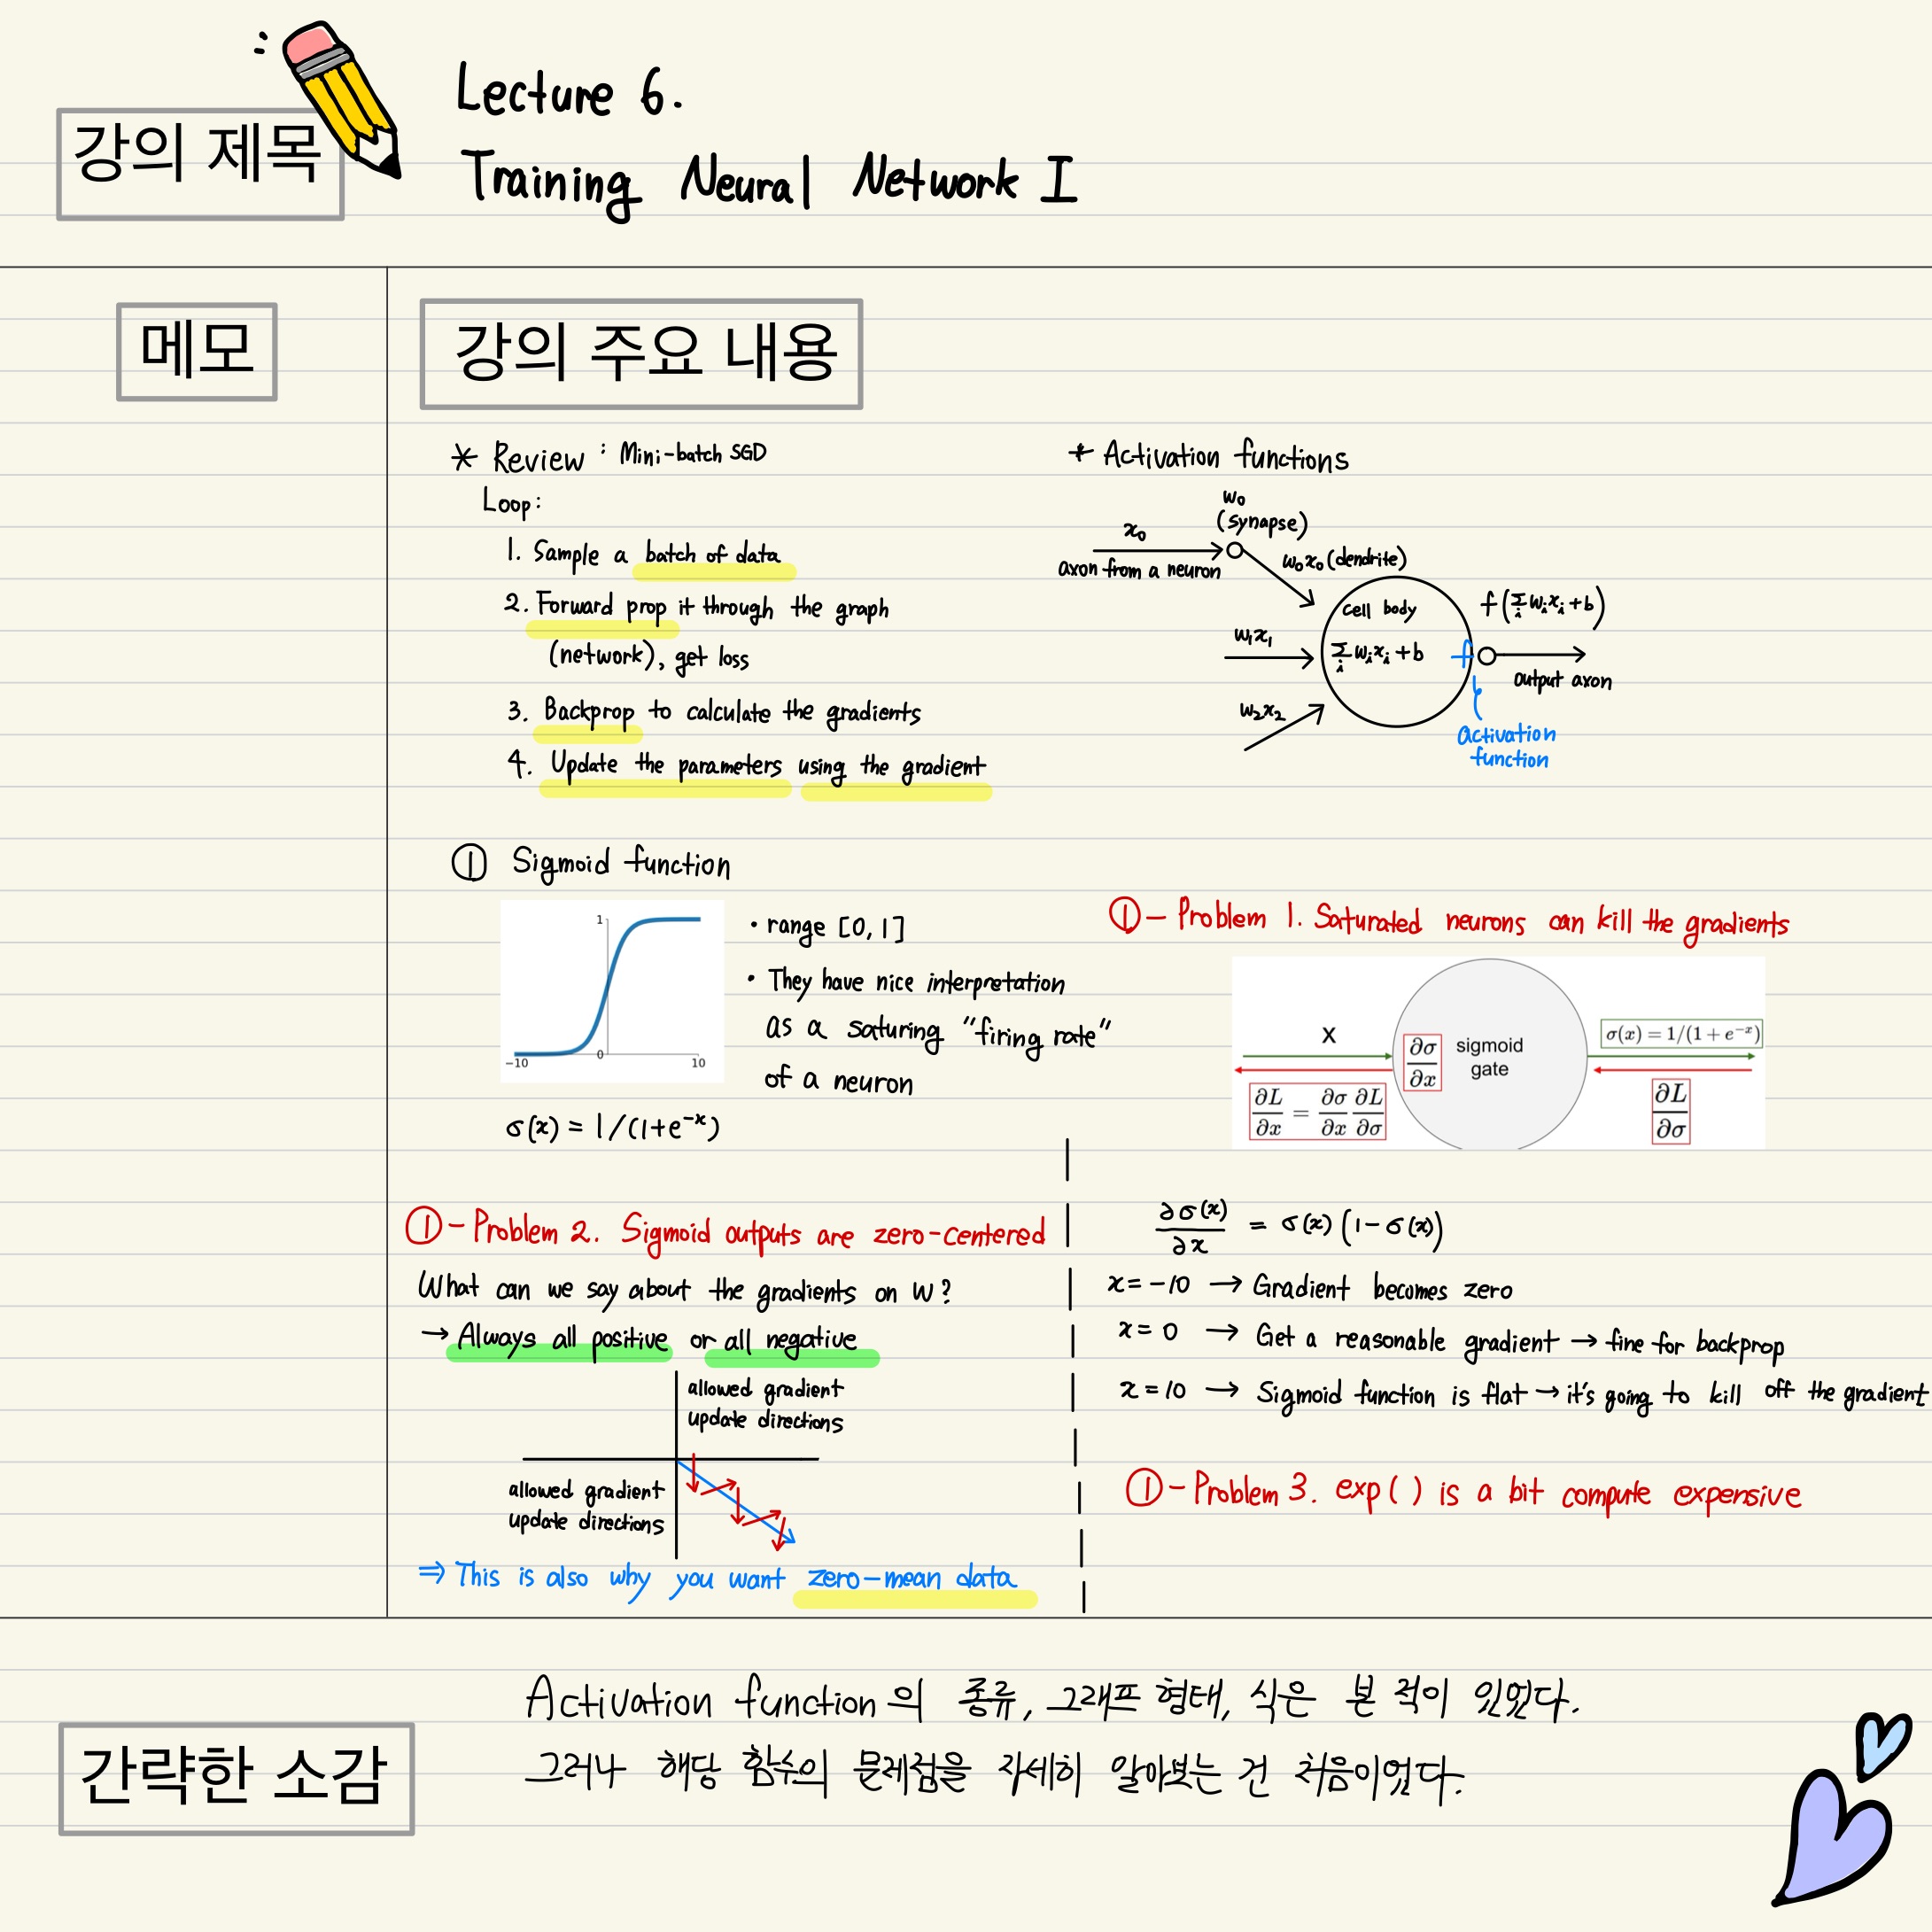 강의 제목
Lecture 6.
Training Neural Network I
메모
강의 주요 내용
* Review : Mini-batch SGD
Loop:
1. Sample a batch of data
2. Forward prop it through the graph
(network), get loss
3. Backprop to calculate the gradients
4. Update the parameters using the gradient
* Activation functions
x₀
axon from a neuron
w₀
(synapse)
w₀x₀ (dendrite)
cell body
w₁x₁
∑ᵢ wᵢxᵢ+b
f
w₂x₂
f(∑ᵢ wᵢxᵢ+b)
output axon
activation
function
① Sigmoid function
1
0
-10
10
• range [0, 1]
• They have nice interpretation
as a saturing "firing rate"
of a neuron
σ(x) = 1/(1+e⁻ˣ)
①- Problem 1. Saturated neurons can kill the gradients
X
∂σ/∂x
sigmoid
gate
σ(x) = 1/(1 + e⁻ˣ)
∂L/∂x = ∂σ/∂x ∂L/∂σ
∂L/∂σ
∂σ(x)/∂x = σ(x)(1-σ(x))
x=-10 → Gradient becomes zero
x= 0 → Get a reasonable gradient → fine for backprop
x=10 → Sigmoid function is flat → it's going to kill off the gradient
①-Problem 2. Sigmoid outputs are zero-centered
What can we say about the gradients on W?
→ Always all positive or all negative
allowed gradient
update directions
allowed gradient
update directions
⇒ This is also why you want zero-mean data
①-Problem 3. exp( ) is a bit compute expensive
간략한 소감
Activation function의 종류, 그래프 형태, 식은 본 적이 있었다.
그러나 해당 함수의 문제점을 자세히 알아보는 건 처음이었다.